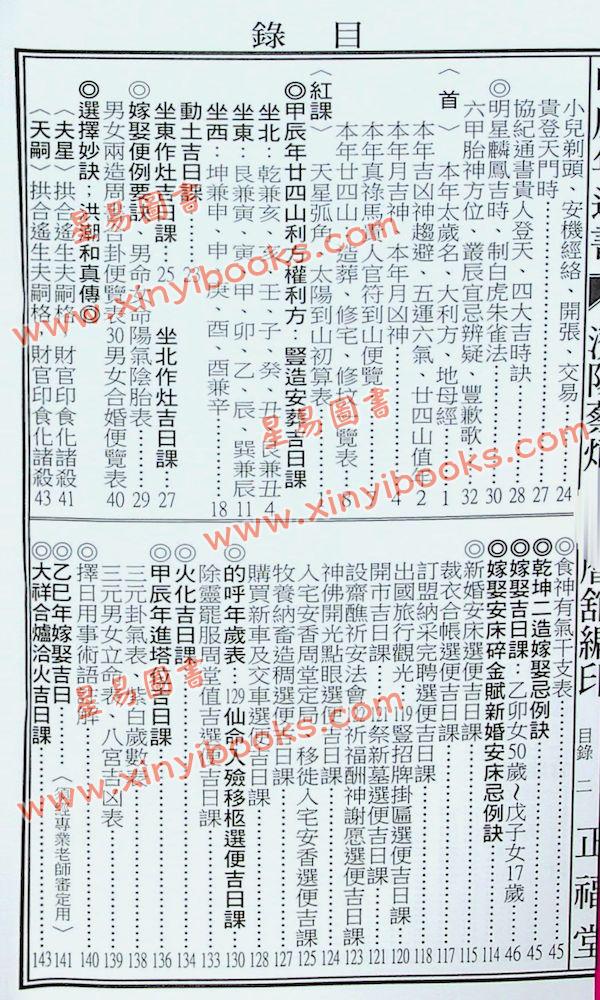 目錄
小兒剃頭、安機經絡、開張、交易……24
貴登天門時……27
協紀通書貴人登天、四大吉時訣……28
◎明星麟鳳吉時、制白虎朱雀法……30
六甲胎神方位、叢辰宜忌辨疑、豐歉歌……32
〈首〉本年太歲名、大利方、地母經……1
本年吉凶神趨避、五運六氣、廿四山值年……2
本年月吉神、本年月凶神……4
本年真祿馬貴人官符到山便覽……7
本年廿四山造葬、修宅、修墳一覽表……8
〈紅課〉天星弧角、太陽到山初算表……1
◎甲辰年廿四山利方權利方:豎造安葬吉日課
坐北:乾兼亥、亥、壬、子、癸、丑、艮兼丑……4
坐東:艮兼寅、寅、甲、卯、乙、辰、巽兼辰……11
坐西:坤兼申、申、庚、酉、酉兼辛……18
動土吉日課……23
坐東作灶吉日課……25 坐北作灶吉日課……27
◎嫁娶便例要訣、男命女命陽氣陰胎表……29
男女兩造周堂吉卦便覽表30男女合婚便覽表……40
◎選擇妙訣;洪潮和真傳◎
〈夫星〉拱合遙生夫嗣格、財官印食化諸殺……41
〈天嗣〉拱合遙生夫嗣格、財官印食化諸殺……43
◎食神有氣干支表……45
◎乾坤二造嫁娶忌例訣……45
◎嫁娶吉日課:乙卯女50歲~戊子女17歲……46
◎嫁娶安床碎金賦新婚安床忌例訣……114
新婚安床選便吉日課……115
裁衣合帳選便吉日課……117
訂盟納采完聘選便吉日課……118
出國旅行觀光……119豎招牌掛匾選便吉日課……120
開市吉日課……121祭新墓選便吉日課……121
設齋醮祈安法會……祈福酬神謝愿選便吉日課……123
神佛開光點眼選便吉日課……124
入宅安香周堂定局、移徙入宅安香選便吉日課……125
牧養納畜造稠選便吉日課……127
購買新車及交車選便吉日課……128
◎的呼年歲表……129仙命大殮移柩選便吉日課……130
除靈罷服周堂值吉選便吉日課……133
◎火化吉日課……134
◎甲辰年進塔位吉日課……136
三元卦氣表、紫白歲數表……138
三元男女立命表、八宮吉凶表……139
◎擇日用事術語註解……140
◎乙巳年嫁娶吉日……〈須經專業老師審定用〉……141
◎大祥合爐洽火吉日課……143
目錄 二 正福堂
星易圖書
www.xinyibooks.com
星易圖書
www.xinyibooks.com
星易圖書
www.xinyibooks.com